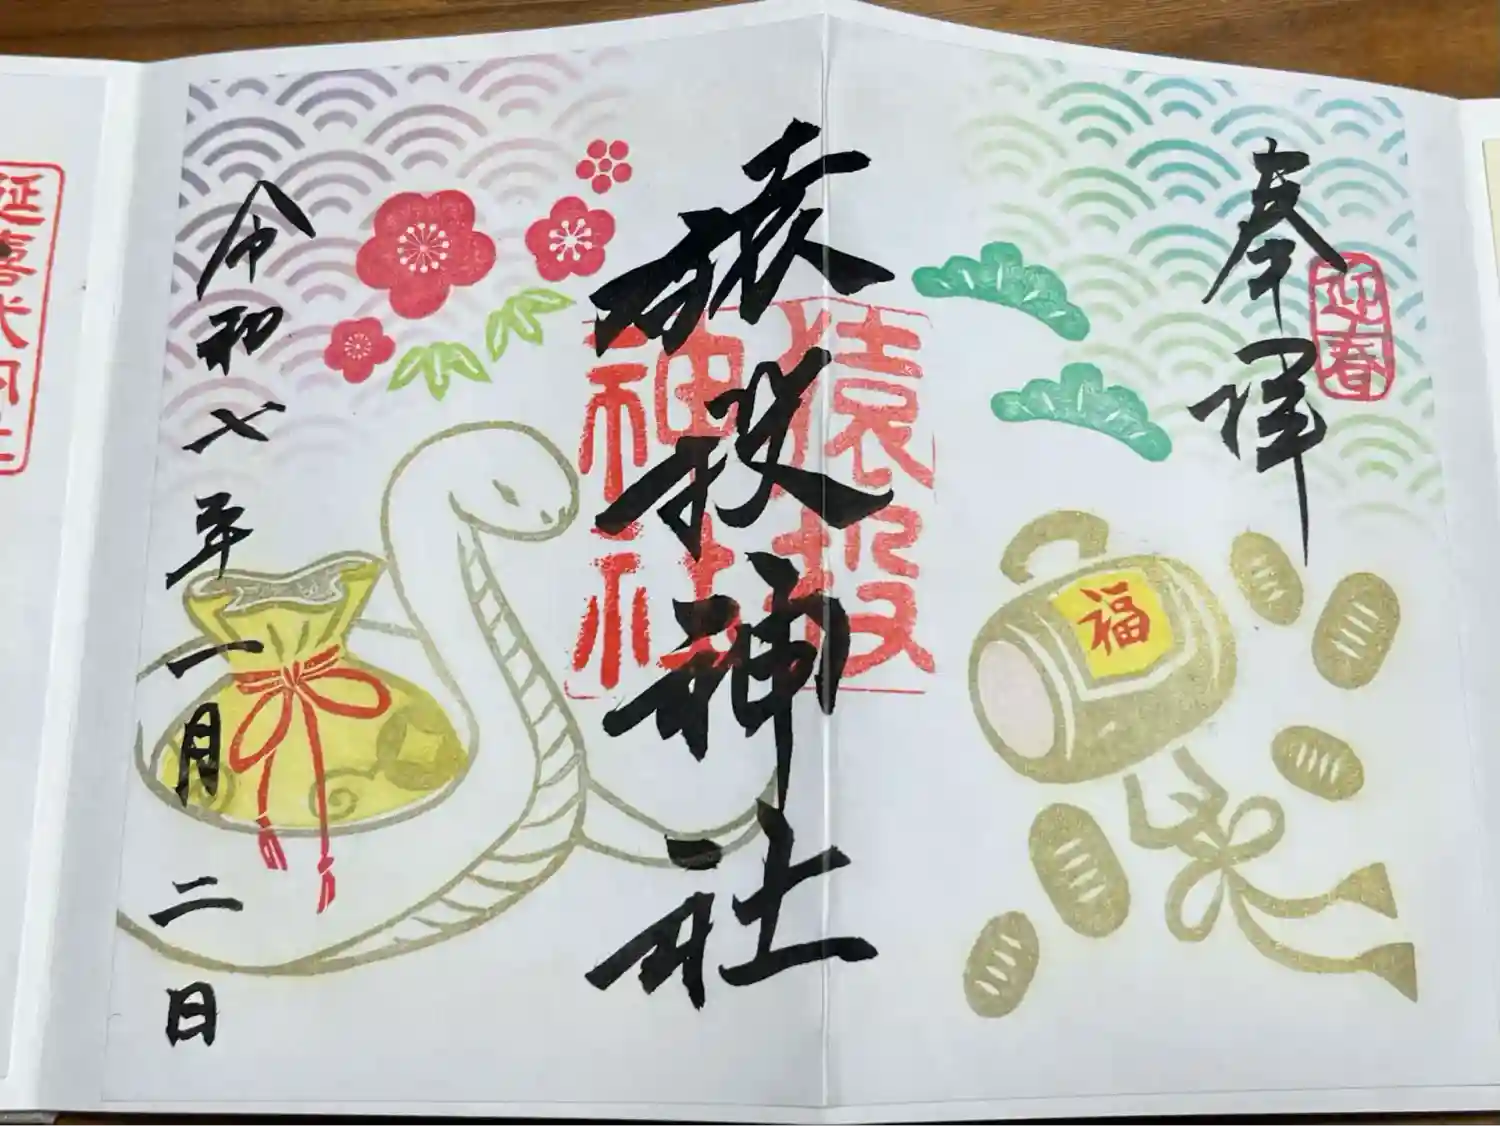 奉拝
迎春
福
猿投神社
猿投
神社
令和七年一月二日
延喜式内社